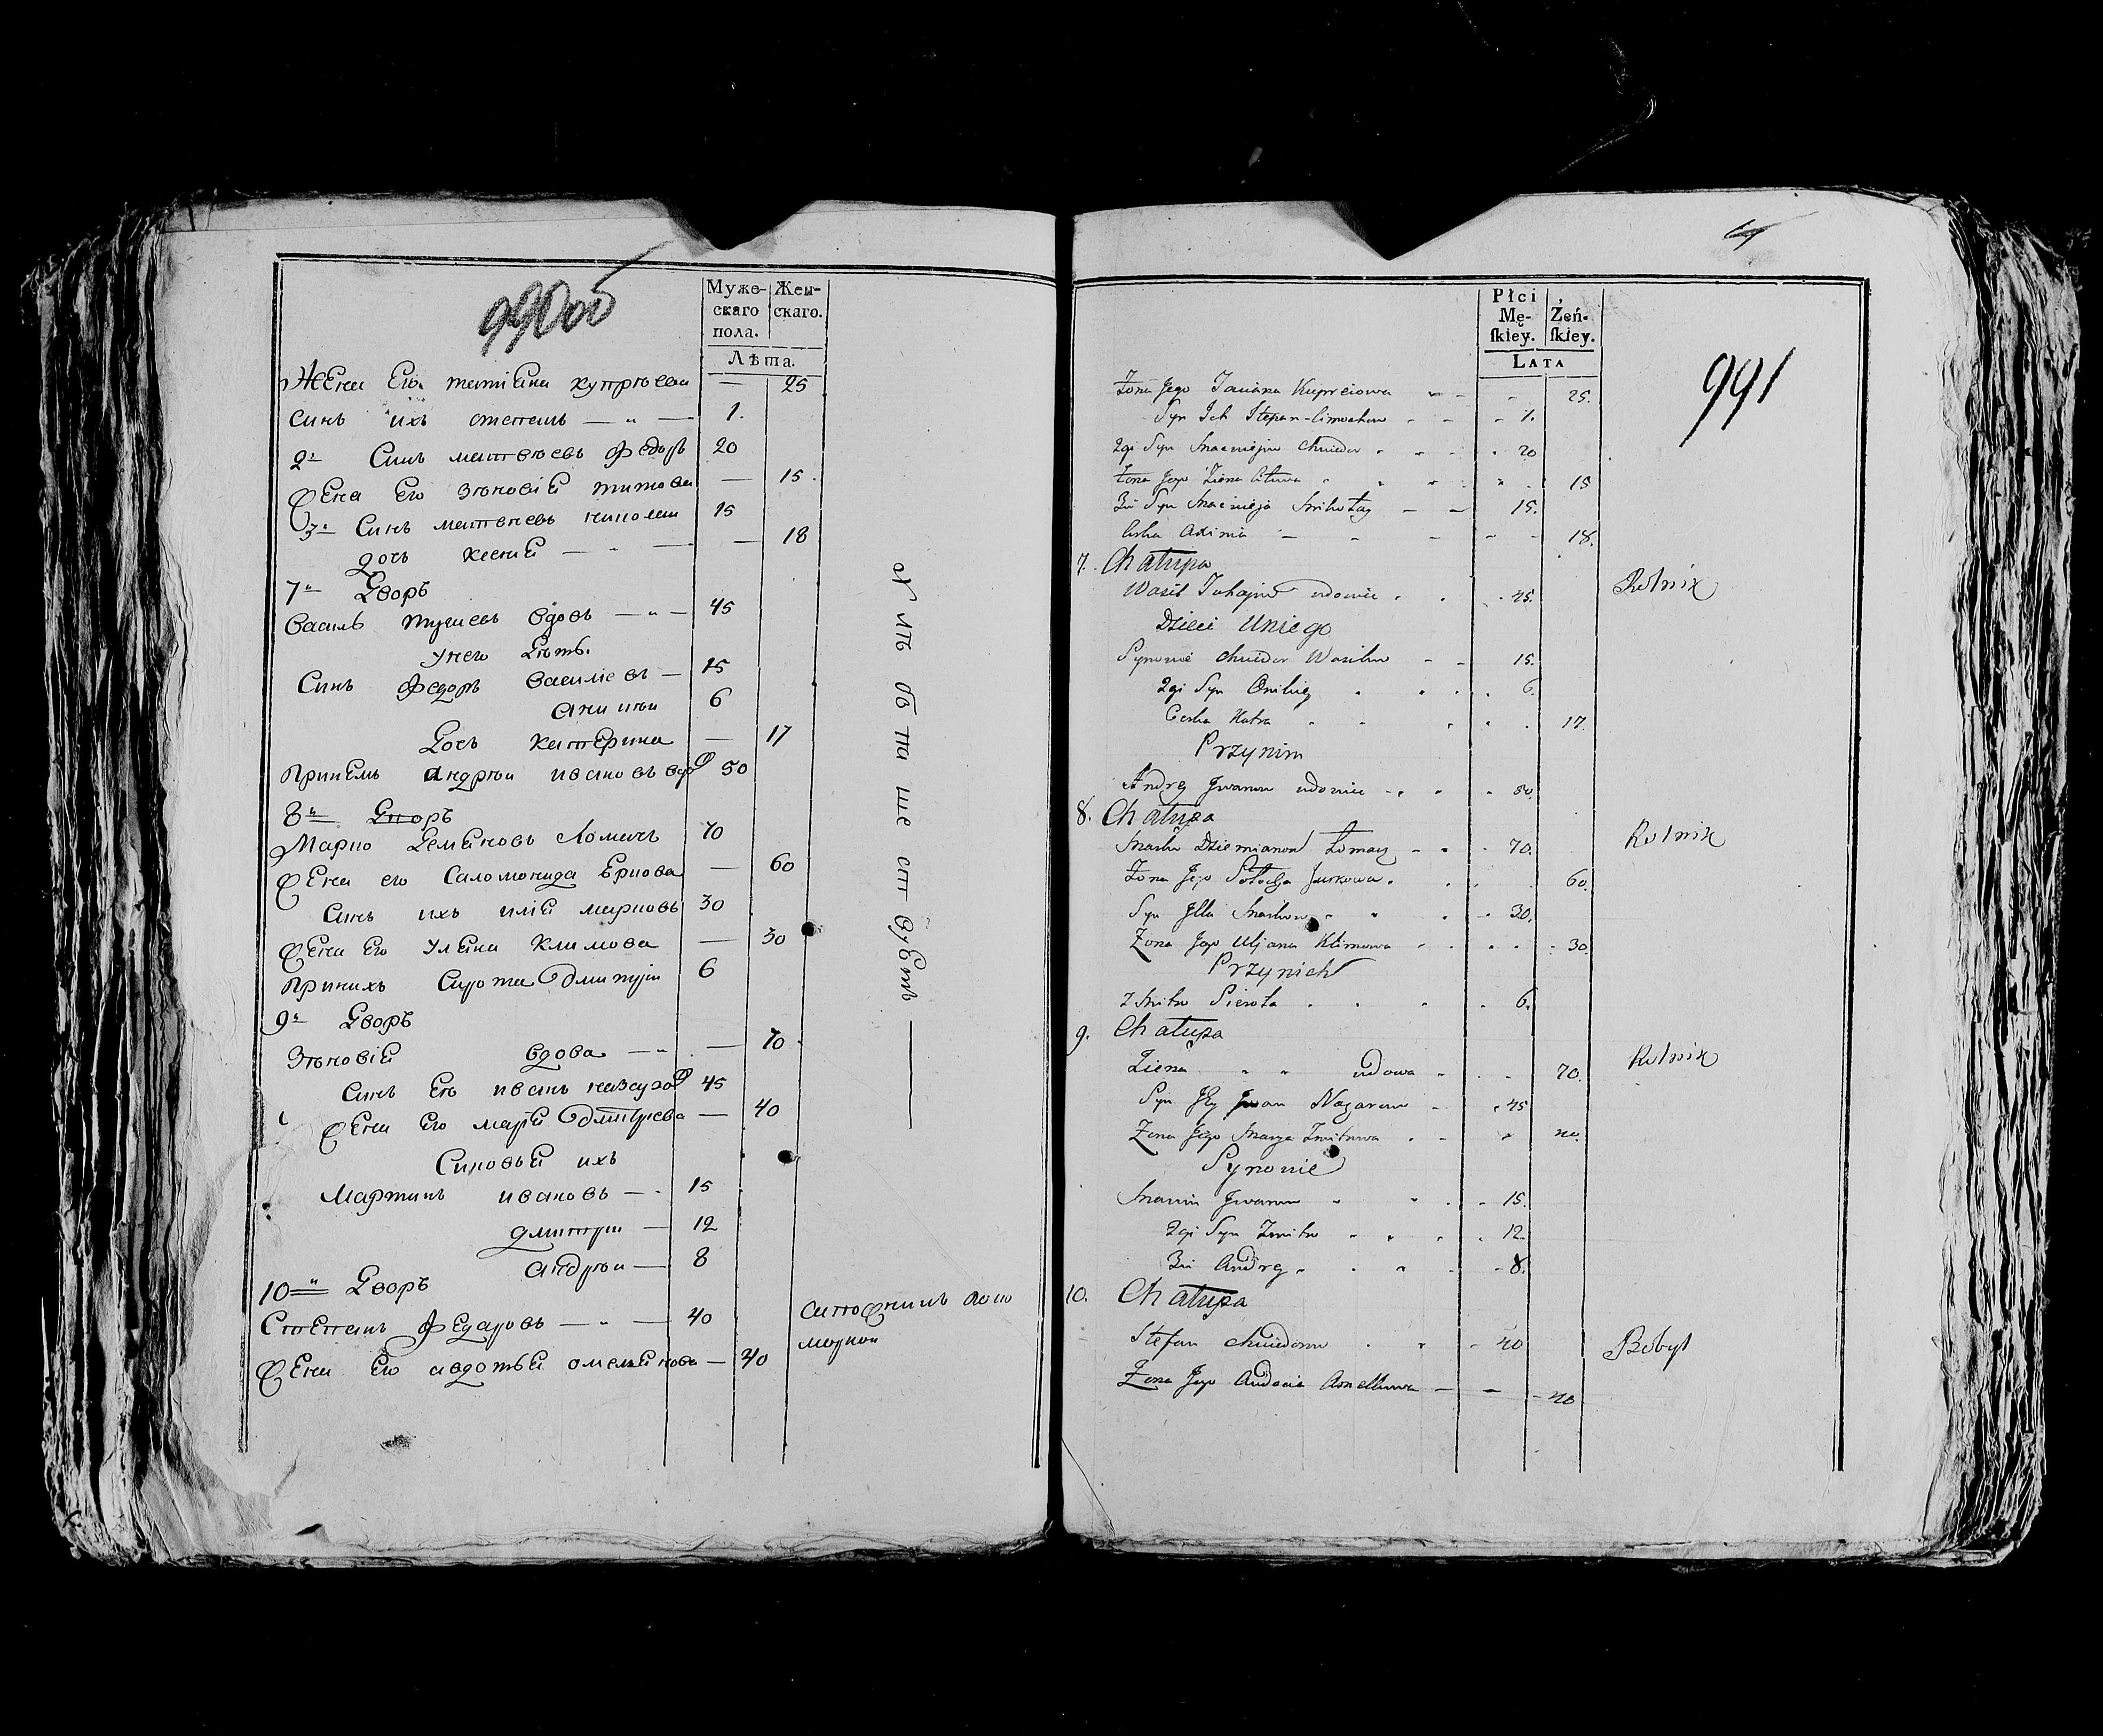 990об
Муже-
скаго
пола.
Жен-
скаго.
Лѣта.
Жена Его татіана купрѣева — 25
синъ ихъ степанъ — „ — 1.
2й Синъ матвѣевъ федоръ 20
Жена Его зѣновіа титова — 15.
3й Синъ матвѣевъ николаи 15
дочь ксеніа — „ — — 18
7й Дворъ
Василь вдовъ — „ — 45
Унего Дѣти.
Синъ федоръ василіевъ — 15
6
Дочь катерина — 17
Принемъ андрѣи ивановъ вдо 50
8й Дворъ
Марко Деміановъ Ломачъ 70
Жена его Саломонида Юркова — 60
Синъ ихъ иліа марковъ 30
Жена Его Улиана Климова — 30
Принихъ Сирота дмитріи 6
9й Дворъ
Зѣновіа вдова — „ — 70.
Синъ Его иванъ назаро 45
Жена Его маріа дмитріева — 40
Синовьа ихъ
Мартинъ ивановъ — . 15
дмитріи — 12
андрѣи — 8
10й Дворъ
Степанъ федаровъ — „ — 40
Жена Его авдотьа омельянова — 40
991
Płci
Mę-
ſkiey.
Żeń-
ſkiey.
LATA
Żona Jego Taciana Kuprciowa 25.
Syn Ich Stepan 1.
2gi Syn Chwiedor 20
Żona Jego Ziena 15
3ci Syn Mikołay 15.
Corka Axinia 18.
7. Chałupa
Wasil udowiec 45. Rolnik
Dzieci Uniego
Synowie Chwiedor Wasilow 15.
2gi Syn 6.
Corka Katra 17.
Przynim
Andrey Jwanow udowiec 50
8. Chałupa
Marko Dziemianow Łomacz 70. Rolnik
Żona Jego Jurkowa 60
Syn Jlla Markow 30.
Żona Jego Uljana Klimowa 30
Przynich
Zmitr Sierota 6.
9. Chałupa
Ziena „ „ udowa 70. Rolnik
Syn Jey Jwan Nazarow 45
Żona Jego Marya Zmitrowa 40.
Synowie
Marcin Jwanow 15.
2gi Syn Zmitr 12.
3ci Andrey 8.
10. Chałupa
Stefan Chwiedorow 40 Bobyl
Żona Jego Audocia 40